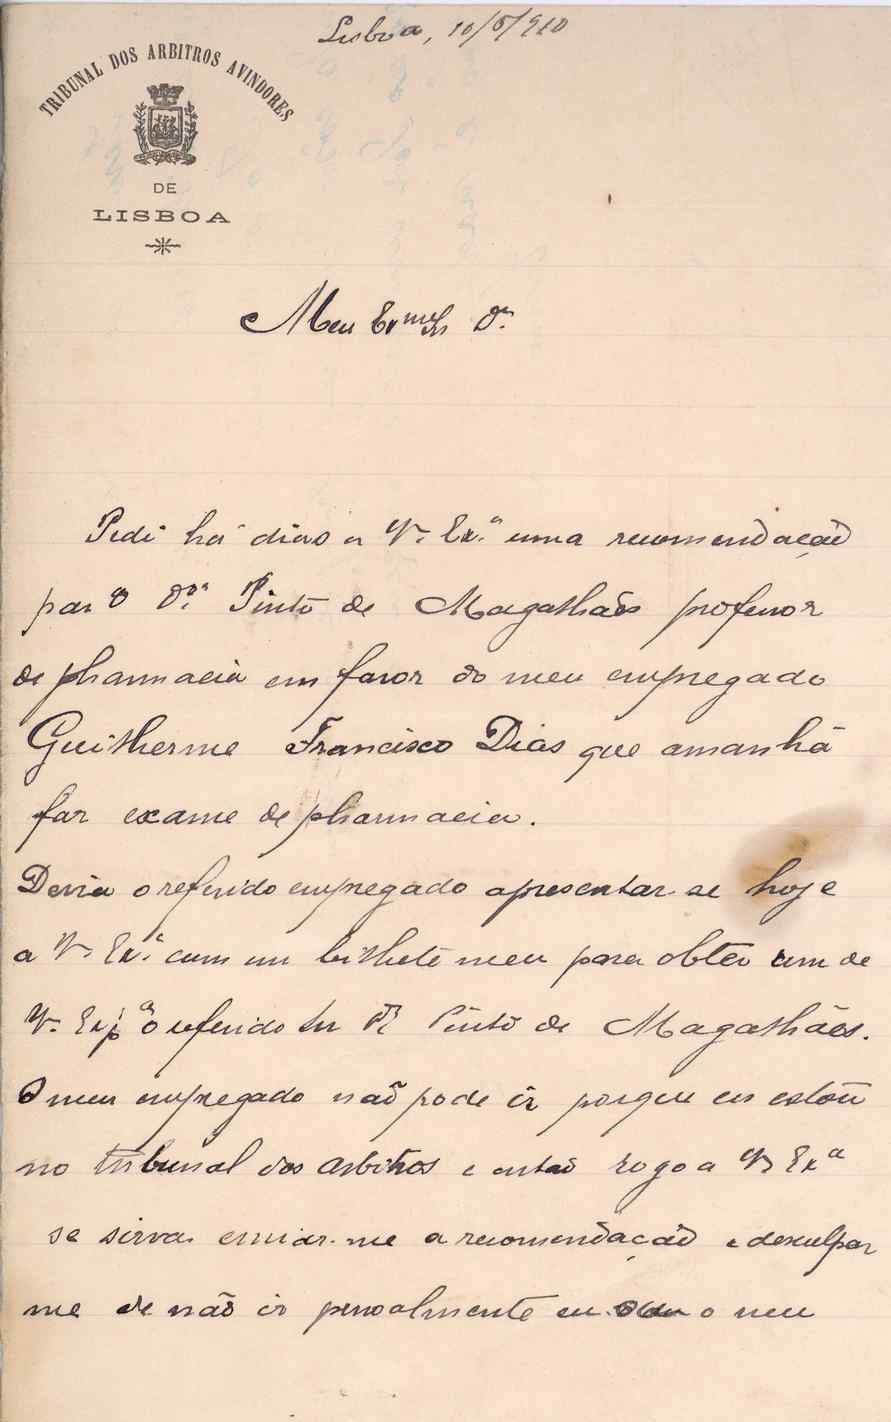 Lisboa, 10/5/910
TRIBUNAL DOS ARBITROS AVINDORES
DE
LISBOA
Meu Exmo Dr.
Pedi há dias a V. Exa. uma recomendação
para o Dr. Pinto de Magalhães professor
de pharmacia em favor do meu empregado
Guilherme Francisco Dias que amanhã
faz exame de pharmacia.
Devia o referido empregado apresentar-se hoje
a V. Exa. com um bilhete meu para obter um de
V. Exa. p. o referido Dr. Pinto de Magalhães.
O meu empregado não pode ir porque eu estou
no tribunal dos arbitros e então rogo a V. Exa
se sirva enviar-me a recomendação e desculpar
me de não ir pessoalmente eu o meu